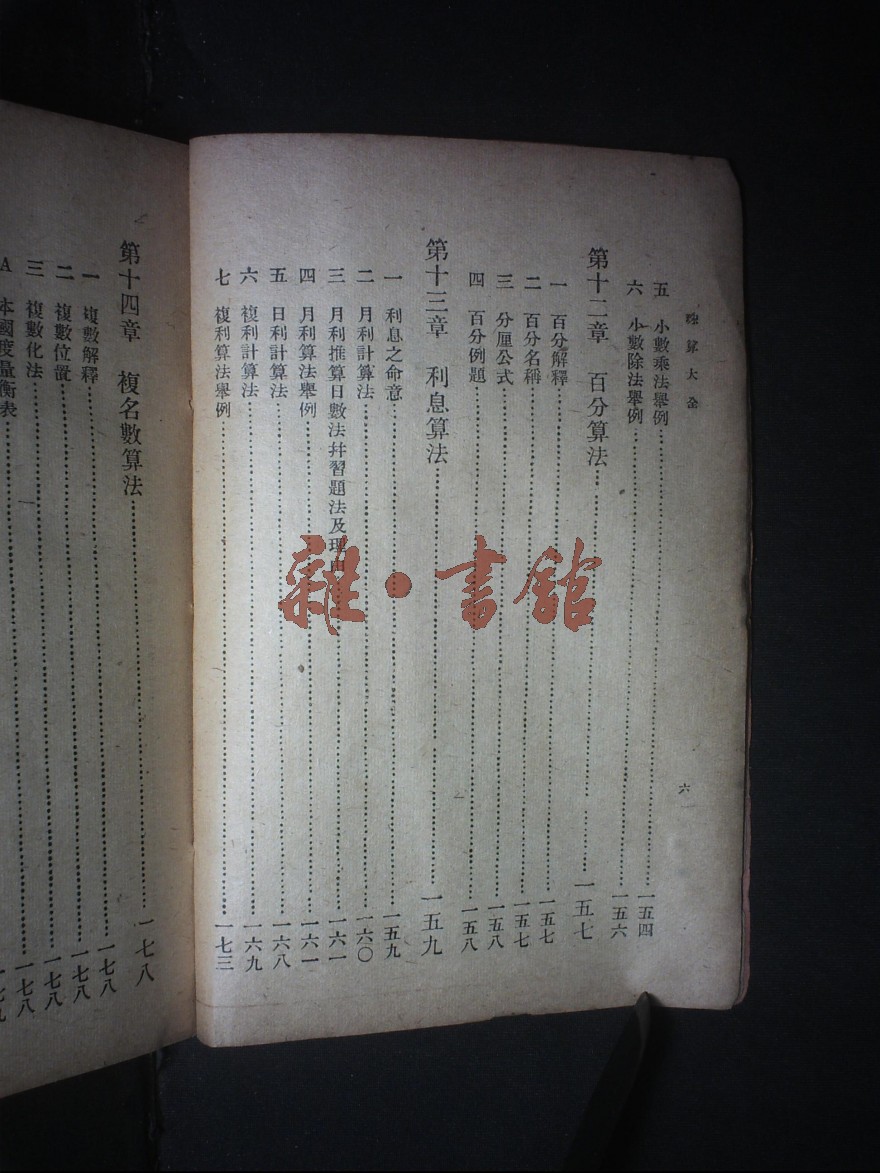 珠算大全
六
五 小數乘法舉例 一五四
六 小數除法舉例 一五六
第十二章 百分算法 一五七
一 百分解釋 一五七
二 百分名稱 一五七
三 分厘公式 一五八
四 百分例題 一五八
第十三章 利息算法 一五九
一 利息之命意 一五九
二 月利計算法 一六〇
三 月利推算日數法幷習題法及理由 一六一
四 月利算法舉例 一六一
五 日利計算法 一六八
六 複利計算法 一六九
七 複利算法舉例 一七三
第十四章 複名數算法 一七八
一 複數解釋 一七八
二 複數位置 一七八
三 複數化法 一七八
A 本國度量衡表 一七九
雜·書館